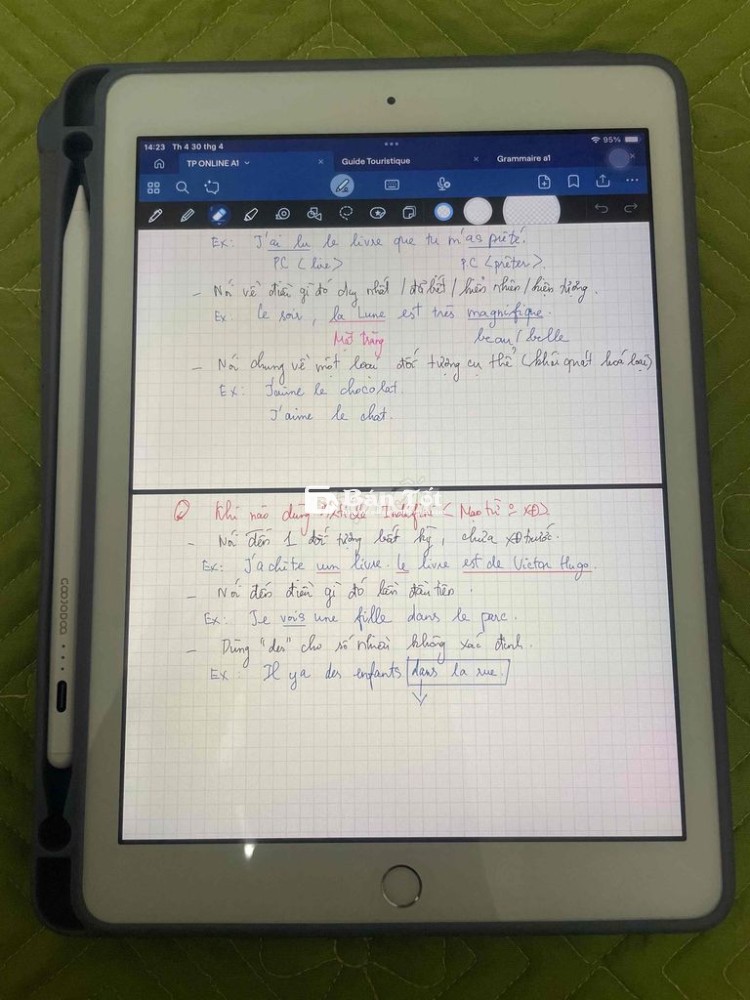 14:23 Th 4 30 thg 4
95%
TP ONLINE A1
Guide Touristique
Grammaire a1
Ex: J'ai lu le livre que tu m'as prêté.
PC (lire) P.C (prêter).
- Nói về điều gì đó duy nhất / đb biết / hiển nhiên / hiện tượng.
Ex Le soir, la Lune est très magnifique.
Mặt trăng beau / belle
- Nói chung về một loại đối tượng cụ thể (khái quát hoá loại)
Ex: J'aime le chocolat.
J'aime le chat.
Bán Tốt
② Khi nào dùng Article Indéfini (Mạo từ 0 xđ)
- Nói đến 1 đối tượng bất kỳ, chưa xđ trước.
Ex: J'achète um livre. Le livre est de Victor Hugo.
- Nói đến điều gì đó lần đầu tiên.
Ex: Je vois une fille dans le parc.
- Dùng "des" cho số nhiều không xác định.
Ex: Il y a des enfants dans la rue.
GOOJODOQ